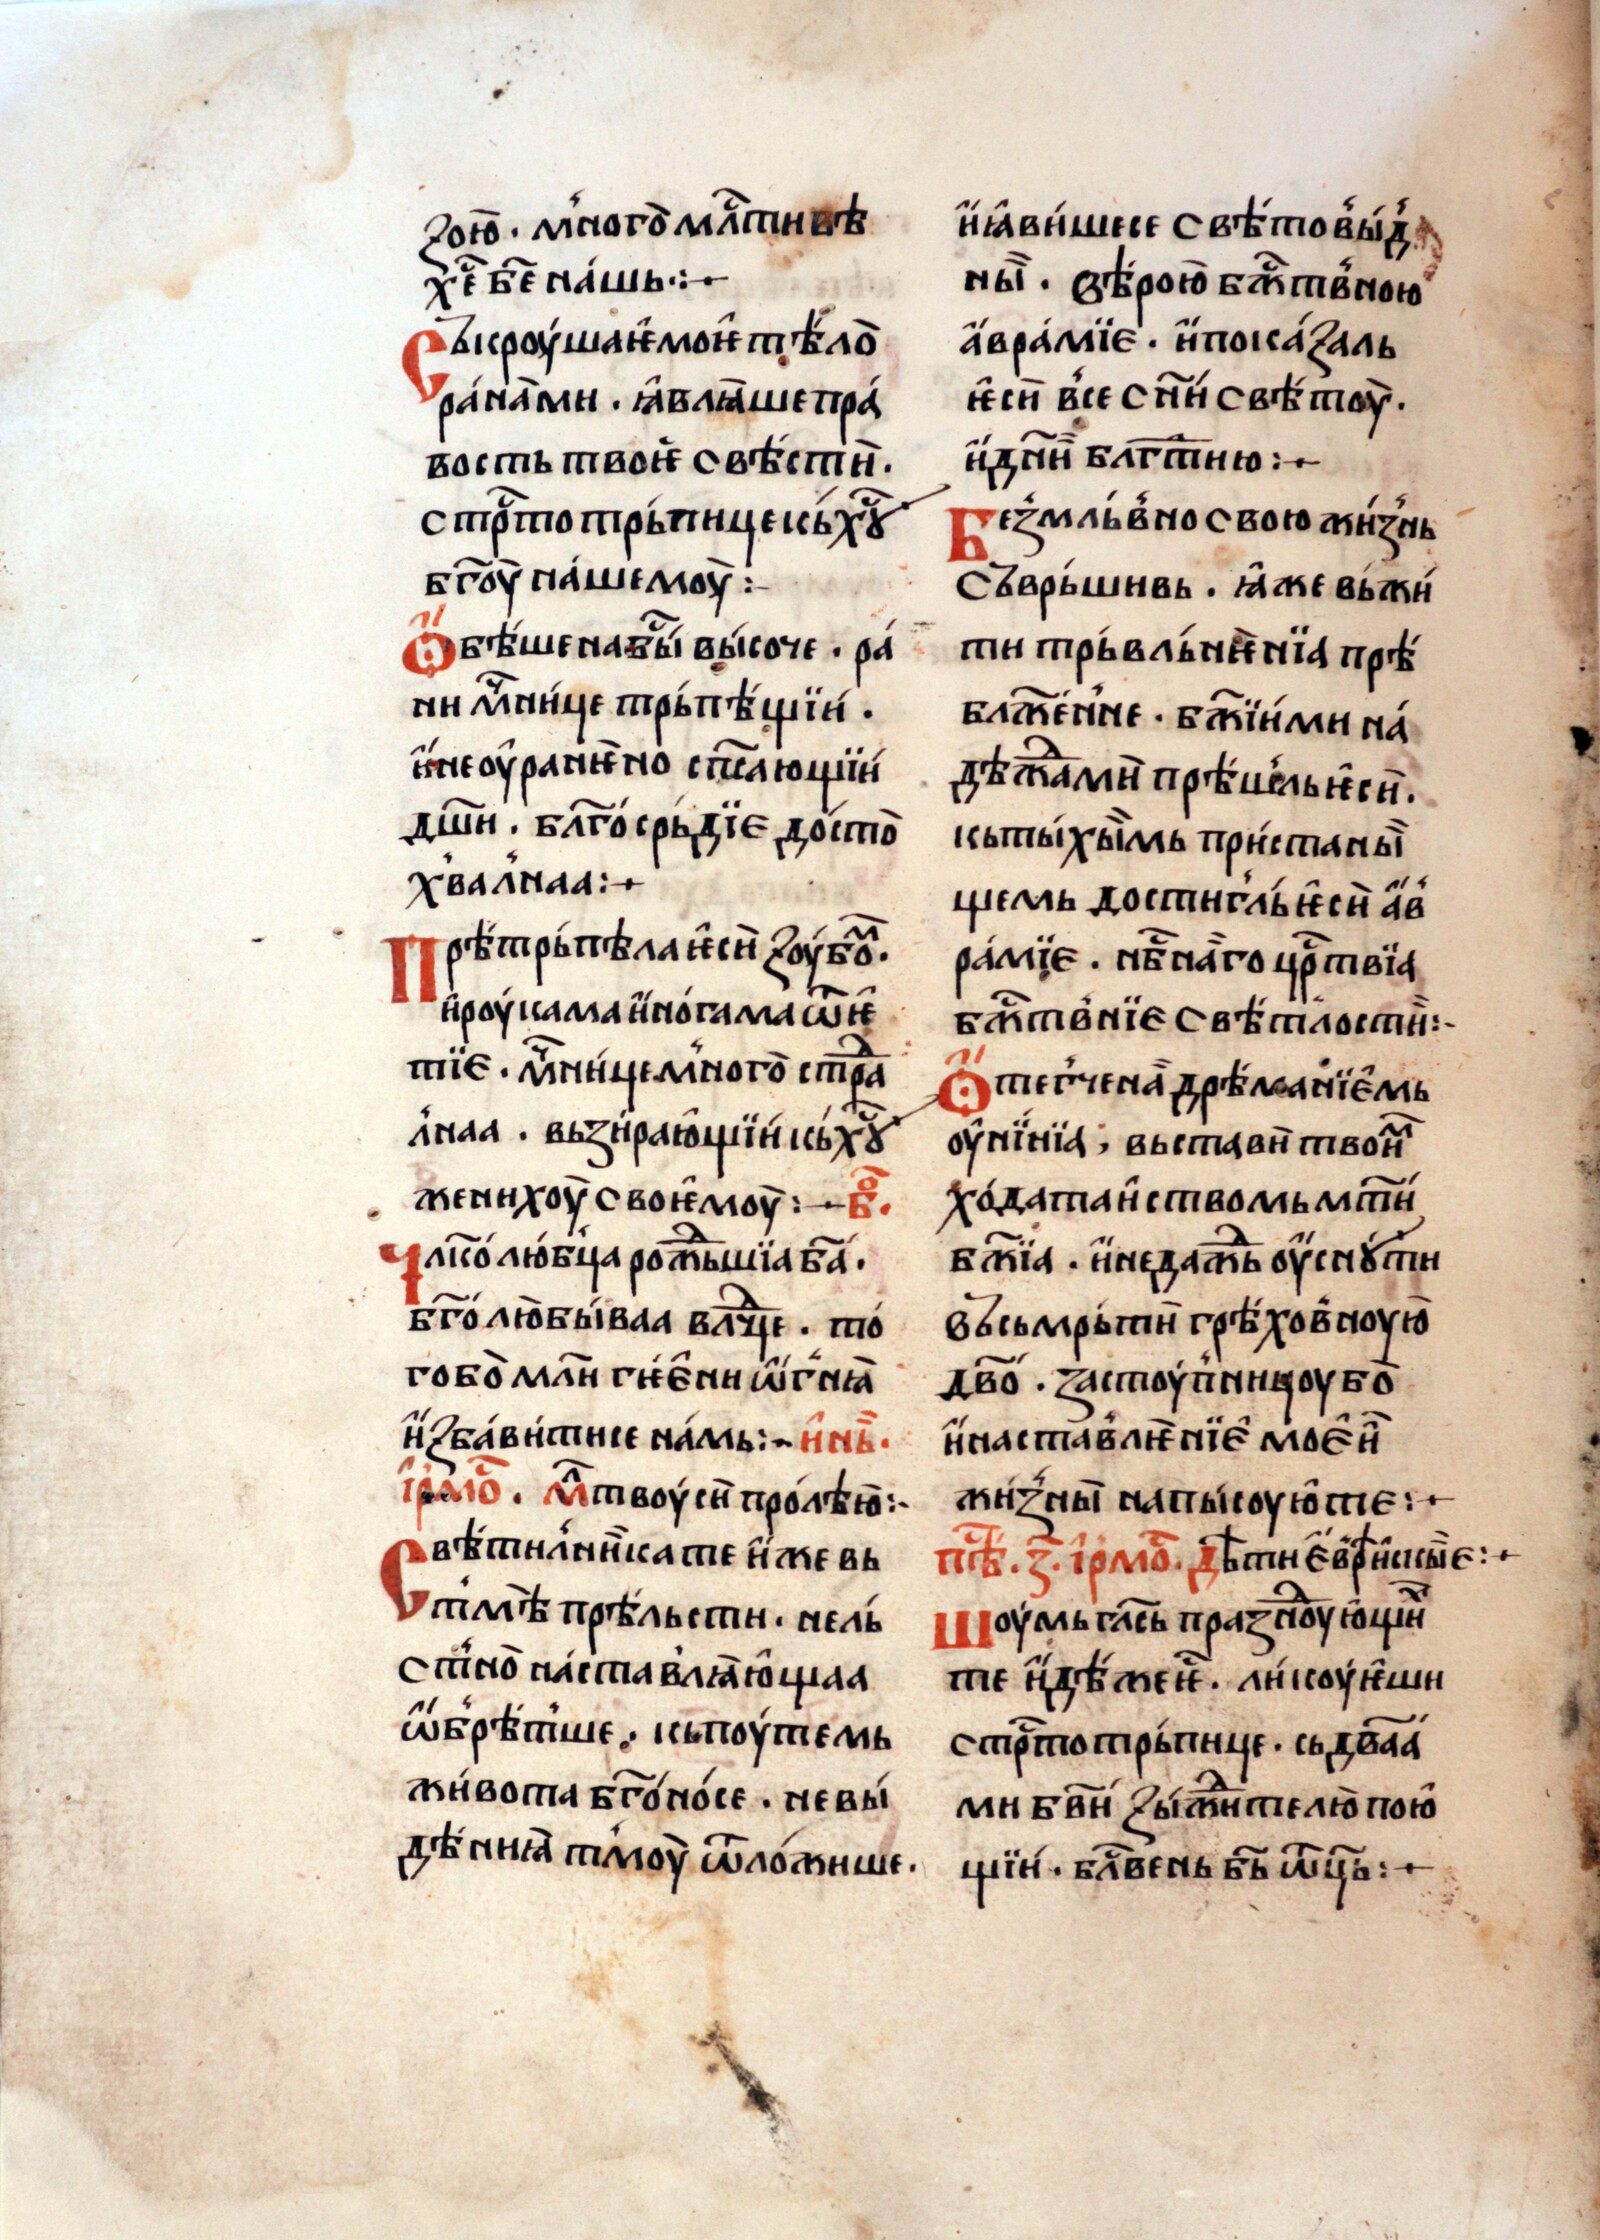 зою̀. мн҆ого̀ млⷭ҇тивѣ
хе҃ бе҃ на́шь·:–
Съкроу́шаѥ҆моѥ҆ тѣ́ло̀
ра́на̀ми. ꙗ҆влꙗ҆ше пра́
вость твоѥ̀ свѣ́стѝ.
стрⷭ҇тотрь́пицекь́ хꙋ҃
бг҃оу̀ на́шемоу̀:–
Ѻ҆бѣ́шена бы́ⷭ҇ вы́соче. ра́
ни мⷱ҇ни́це трь́пѣ́щїи́.
и҆́не оу҆ранѥ̀но сп҃сающїи́
дш҃и. блг҃о́срь́дїе до́сто̀
хв҆ал҆наа:–
Прѣ́трь́пѣла ѥ҆сѝ зоу́бо́ⷨ.
и҆роу́кама и҆́но́гама ѿ ѥ҆
тїе. мⷱ҇ни́це мн҆ого̀ страⷣ
л҆наа. вьзи́раю҆щїи́ кь́ хꙋ҃
женихоу̀ своѥ҆моу̀:– бⷪ҇.
Чл҃ко́лю́б҆ца рожⷣьшїа ба҃́.
бг҃о́лю̀бы́ваа влⷣце. то́
го бо̀ мл҃и гѥ́е҆ни ѡ҆́г҆нꙗ̀
и҆́зба́ви́тисе на́мь:– и҆нь̀.
і҆рмо́ⷭ. мⷧ҇твоу́ сѝ про́лѣю̀:–
Свѣ́тил҆ни̏ка те и҆́же вь
тм҆ѣ̀ прѣ́льсти. нель́
ст҆но̀ на́ставлꙗ҆ю҆щаа
ѡ҆́б҆рѣ́т҆ше. кьпоу́темь
жи́вота бг҃о́но́се. невы́
дѣ́нїꙗ̀ тм҆оу̀ ѿло́жише.
и҆́ꙗ҆ви́шесе свѣ́товы́ⷣ
ны̏. вѣ́рою̀ бжⷭ҇тв҆ною
а҆́вра́мїе. и҆́пока́заль
ѥ҆сѝ в҆се сн҃и́ свѣ́тоу̀.
и҆́дн҃и̏ блгⷣтию:–
Без҆мль́в҆но свою жи́з҆нь
съврь́шивь. ꙗ҆же вь́жи́
ти трь́вль́нѥ̀нїа прѣ́
блаже́н҆не. бж҃їи́ми на́
дѣждами̏ прѣ́ше́ль ѥ҆сѝ.
кьты́хы̏мь при́станы̏
щемь достигль́ ѥ҆сѝ а҆́в
ра́мїе. нбⷭ҇на̀го црⷭ҇твїа
бжⷭ҇тв҆нїе свѣ́т҆лости̏:–
Ѻ҆тег҆чена̀ дрѣ́манїе҆мь
оу҆ни́нїа, вьставѝ твои́ⷨ
хо́датаи҆ствомь мт҃и́
бж҃їа. и҆́не дажⷣь оу҆́снꙋ́ти
въсьмрь́тѝ грѣ́хов҆ноую̀
дв҃о́. застоу́п҆ницоу бо̀
и҆́наставлѥ̀нїе҆ мо́е҆и̏
жи́з҆ны̏ напы́соую҆те:–
пѣⷭ҇. з҃. і҆рмо́ⷭ. Дѣ́ти е҆́вре́и҆скы̏е:–
Шоу́мь глⷭ҇ь празⷣноую҆щи̏
те и҆́дѣ́жеѥ̀. ли́коу́ѥ҆ши
стрⷭ҇тотрь́пице. сь дв҃а́а́
ми бв҃и́ зы́жⷣителю̀ пою҆
щїи́. блⷭ҇вень бь҃ ѿц҃ь:–